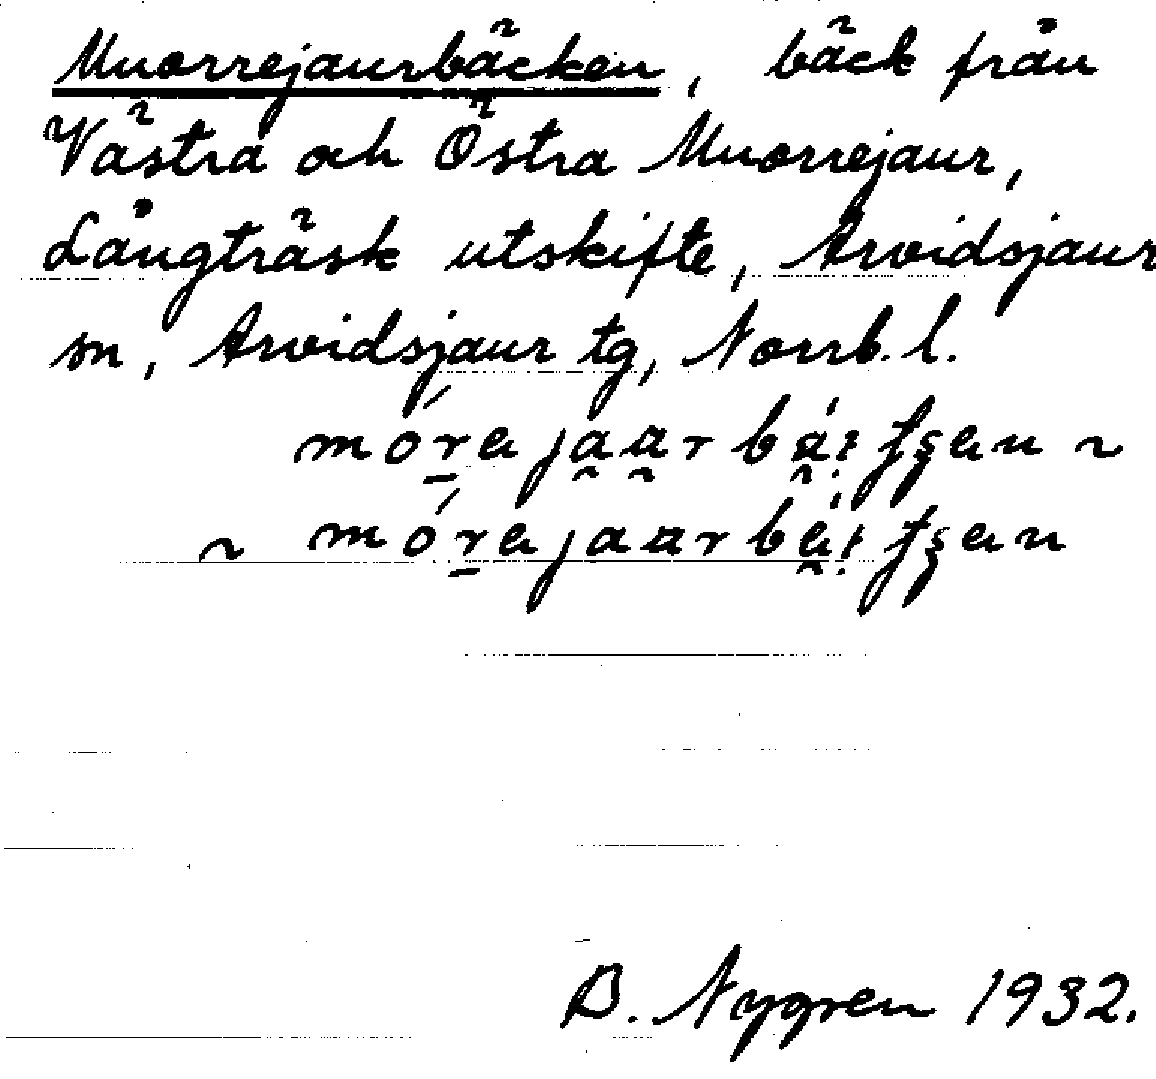 Muorrejaurbäcken, bäck från
Västra och Östra Muorrejaur,
Långträsk utskifte, Arvidsjaur
sn, Arvidsjaur tg, Norrb. l.
B. Nygren 1932.